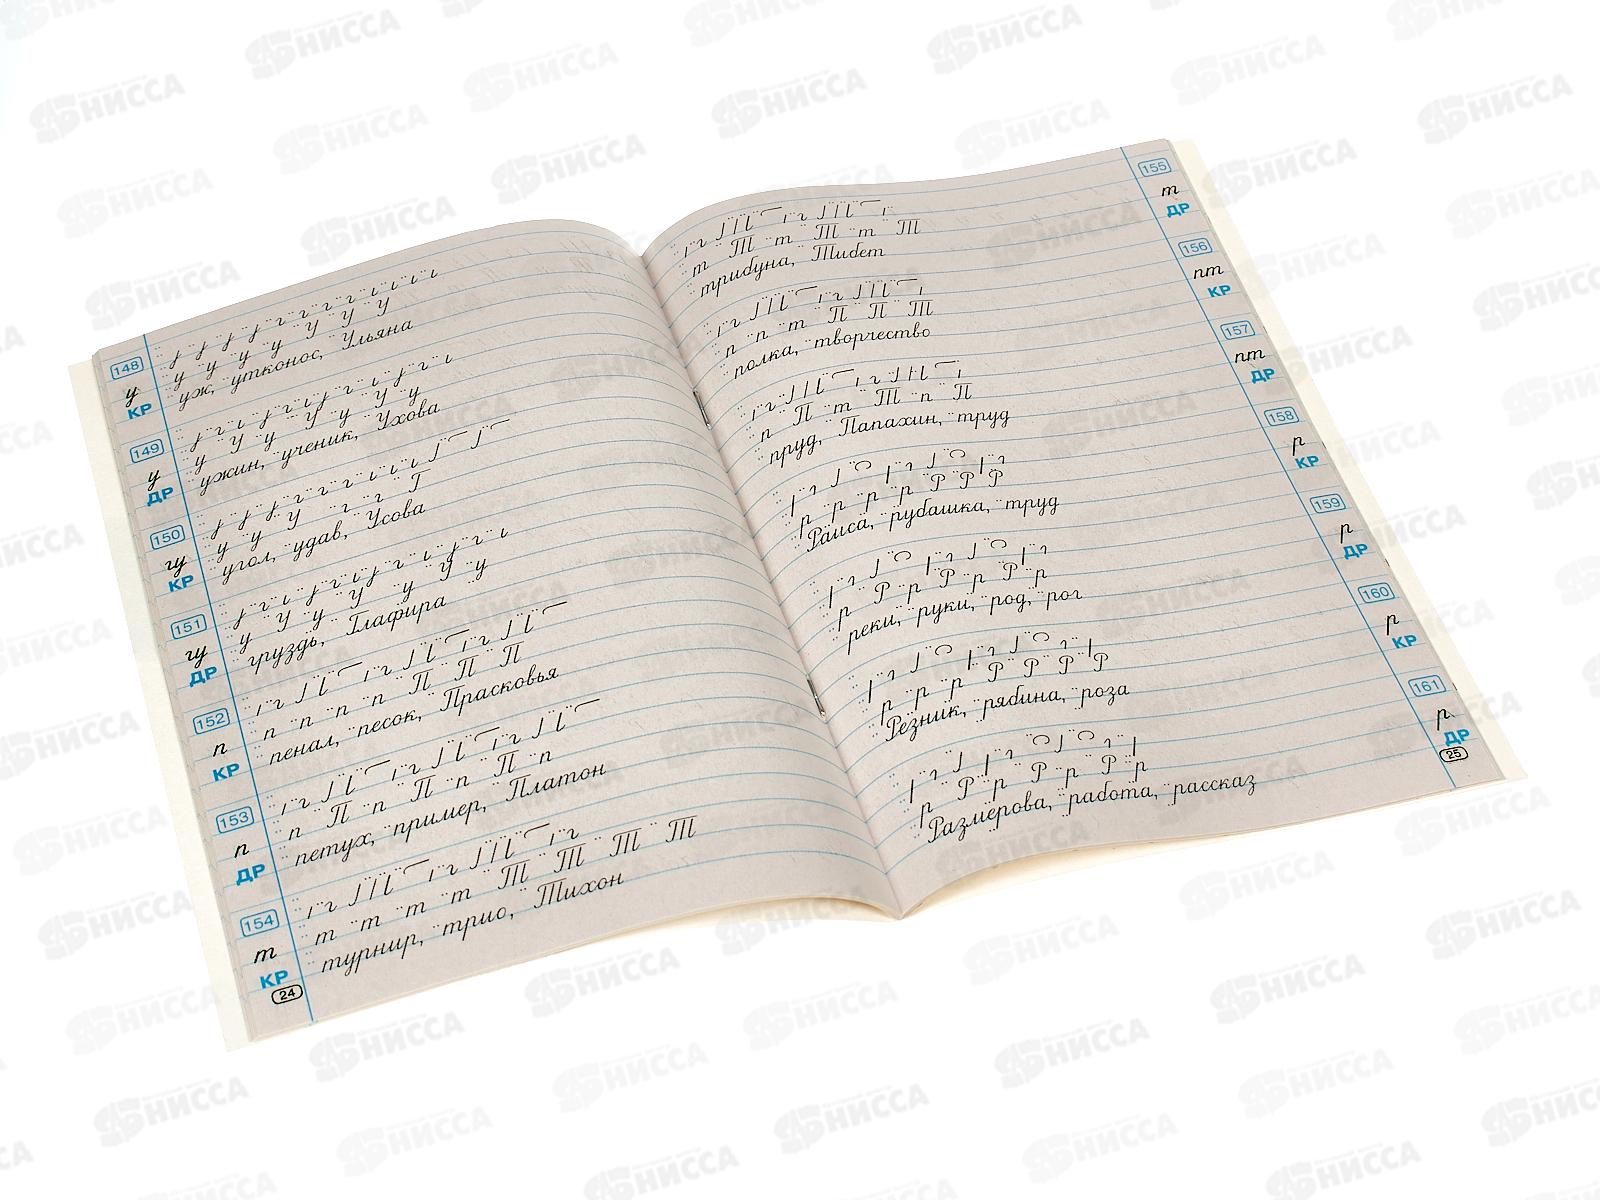 148
у
КР
у у у у У У У
уж, утконос, Ульяна
149
у
ДР
у У у У у У у
ужин, ученик, Ухова
150
гу
КР
у у У г г Г
угол, удав, Усова
151
гу
ДР
у У у У у У у
груздь, Глафира
152
п
КР
п п п п П П П
пенал, песок, Прасковья
153
п
ДР
п П п П п П п
петух, пример, Платон
154
т
КР
т т т т Т Т Т Т
турнир, трио, Тихон
24
155
т
ДР
т Т т Т т Т
трибуна, Тибет
156
пт
КР
п п т П П Т
полка, творчество
157
пт
ДР
п П т Т п П
пруд, Папахин, труд
158
р
КР
р р р р Р Р Р
Раиса, рубашка, труд
159
р
ДР
р Р р Р р Р р
реки, руки, род, рог
160
р
КР
р р р Р Р Р Р
Резник, рябина, роза
161
р
ДР
р Р р Р р Р р
Размерова, работа, рассказ
25
НИССА